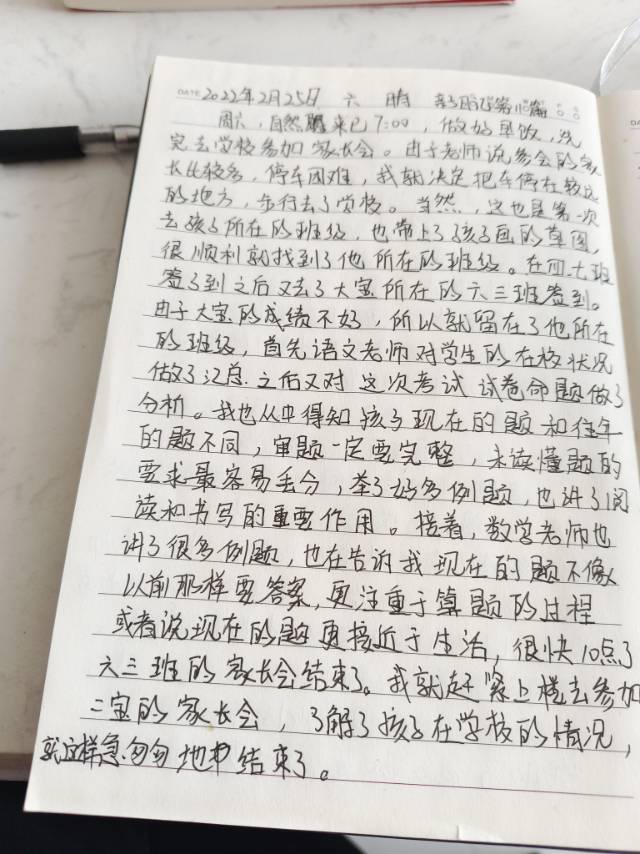 DATE 2022年2月25日 六 晴 亲子日记第 篇
周六，自然醒来已7:00，做好早饭，洗
完去学校参加家长会。由于老师说参会的家
长比较多，停车困难，我就决定把车停在较远
的地方，步行去了学校。当然，这也是第一次
去孩子所在的班级，也带上了孩子画的草图，
很顺利就找到了他所在的班级。在四.七班
签了到之后又去了大宝所在的六三班签到。
由于大宝的成绩不好，所以就留在了他所在
的班级，首先语文老师对学生的在校状况
做了汇总.之后又对这次考试试卷命题做了
分析。我也从中得知孩子现在的题和往年
的题不同，审题一定要完整，未读懂题的
要求最容易丢分，举了好多例题，也讲了阅
读和书写的重要作用。接着，数学老师也
讲了很多例题，也在告诉我现在的题不像
以前那样要答案，更注重于算题的过程
或者说现在的题更接近于生活，很快10点了
六三班的家长会结束了。我就赶紧上楼去参加
二宝的家长会，了解了孩子在学校的情况，
就这样急匆匆地结束了。